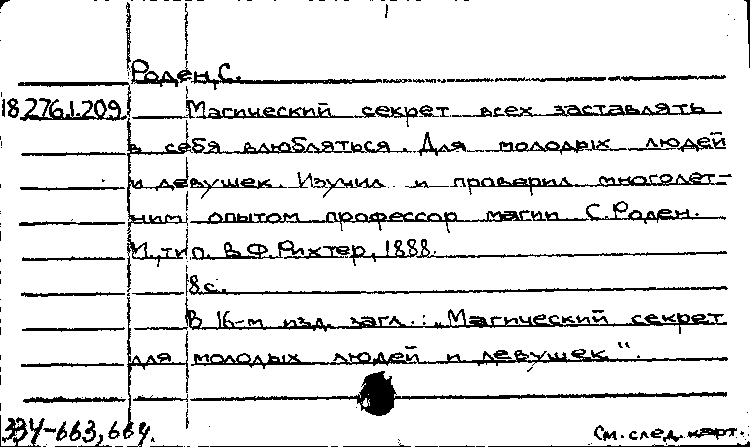 Роден, С.
18.276.1.209
Магический секрет всех заставлять
в себя влюбляться. Для молодых людей
и девушек. Изучил и проверил многолет-
ним опытом профессор магии С. Роден.
М., тип. В.Ф. Рихтер, 1888.
8 с.
В 16-м изд. загл.: „Магический секрет
для молодых людей и девушек".
334-663,664.
См. след. карт.